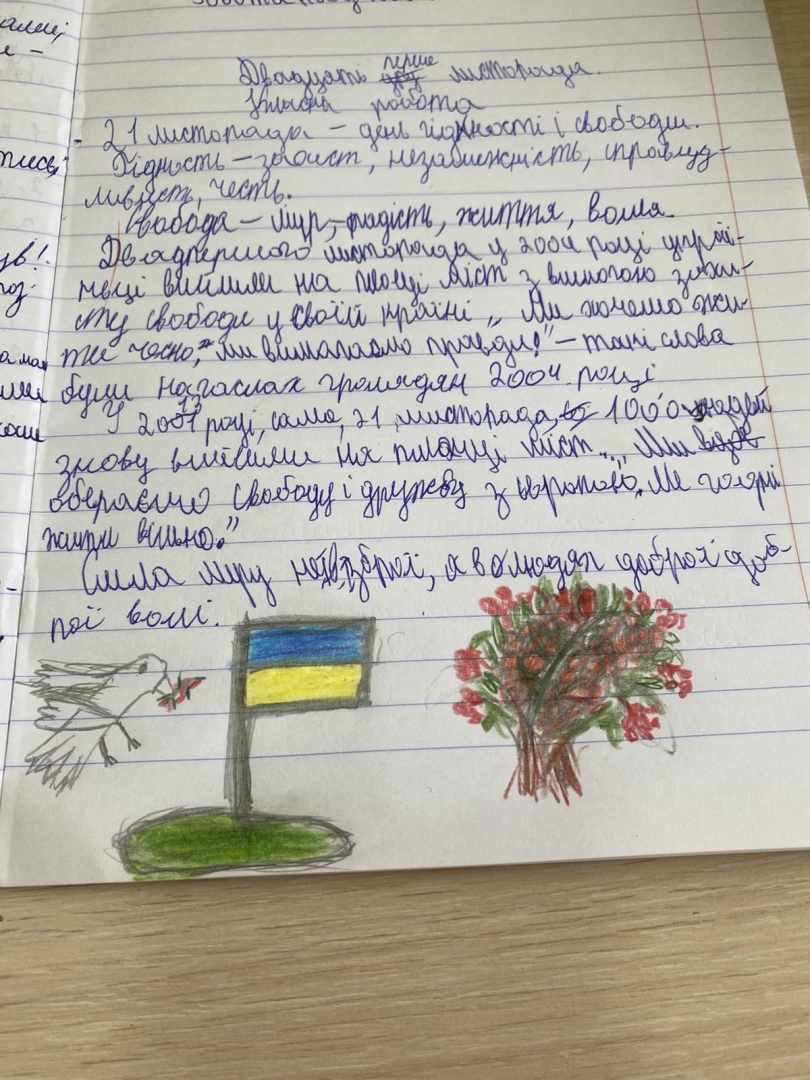 Двадцять перше листопада.
Класна робота
21 листопада – день гідності і свободи.
Гідность – захист, незалежність, справед-
ливість, честь.
Свобода – мир, радість, життя, воля
Двадцпершого листопада у 2004 році украй-
неці вийшли на площі міст з вимогою захи-
сту свободи у своїй країні „ Ми хочемо жи-
ти чесно, ми вимагаємо правди!" – такі слова
були на гаслах громадян 2004 році
У році, само, 21 листопада, 1000 людей
знову вийшли на площі міст. „ Ми
обераємо свободу і дружбу з європою. Ми гідні
жити вільно."
Сила миру не в зброї, а в людях доброї
рої волі.